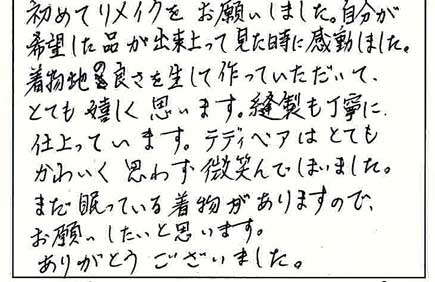 初めてリメイクを お願いしました。自分が
希望した品が出来上って見た時に感動しました。
着物地の良さを生して作っていただいて、
とても嬉しく思います。縫製も丁寧に
仕上っています。テディベアはとても
かわいく思わず微笑んでしまいました。
まだ眠っている着物がありますので、
お願いしたいと思います。
ありがとうございました。